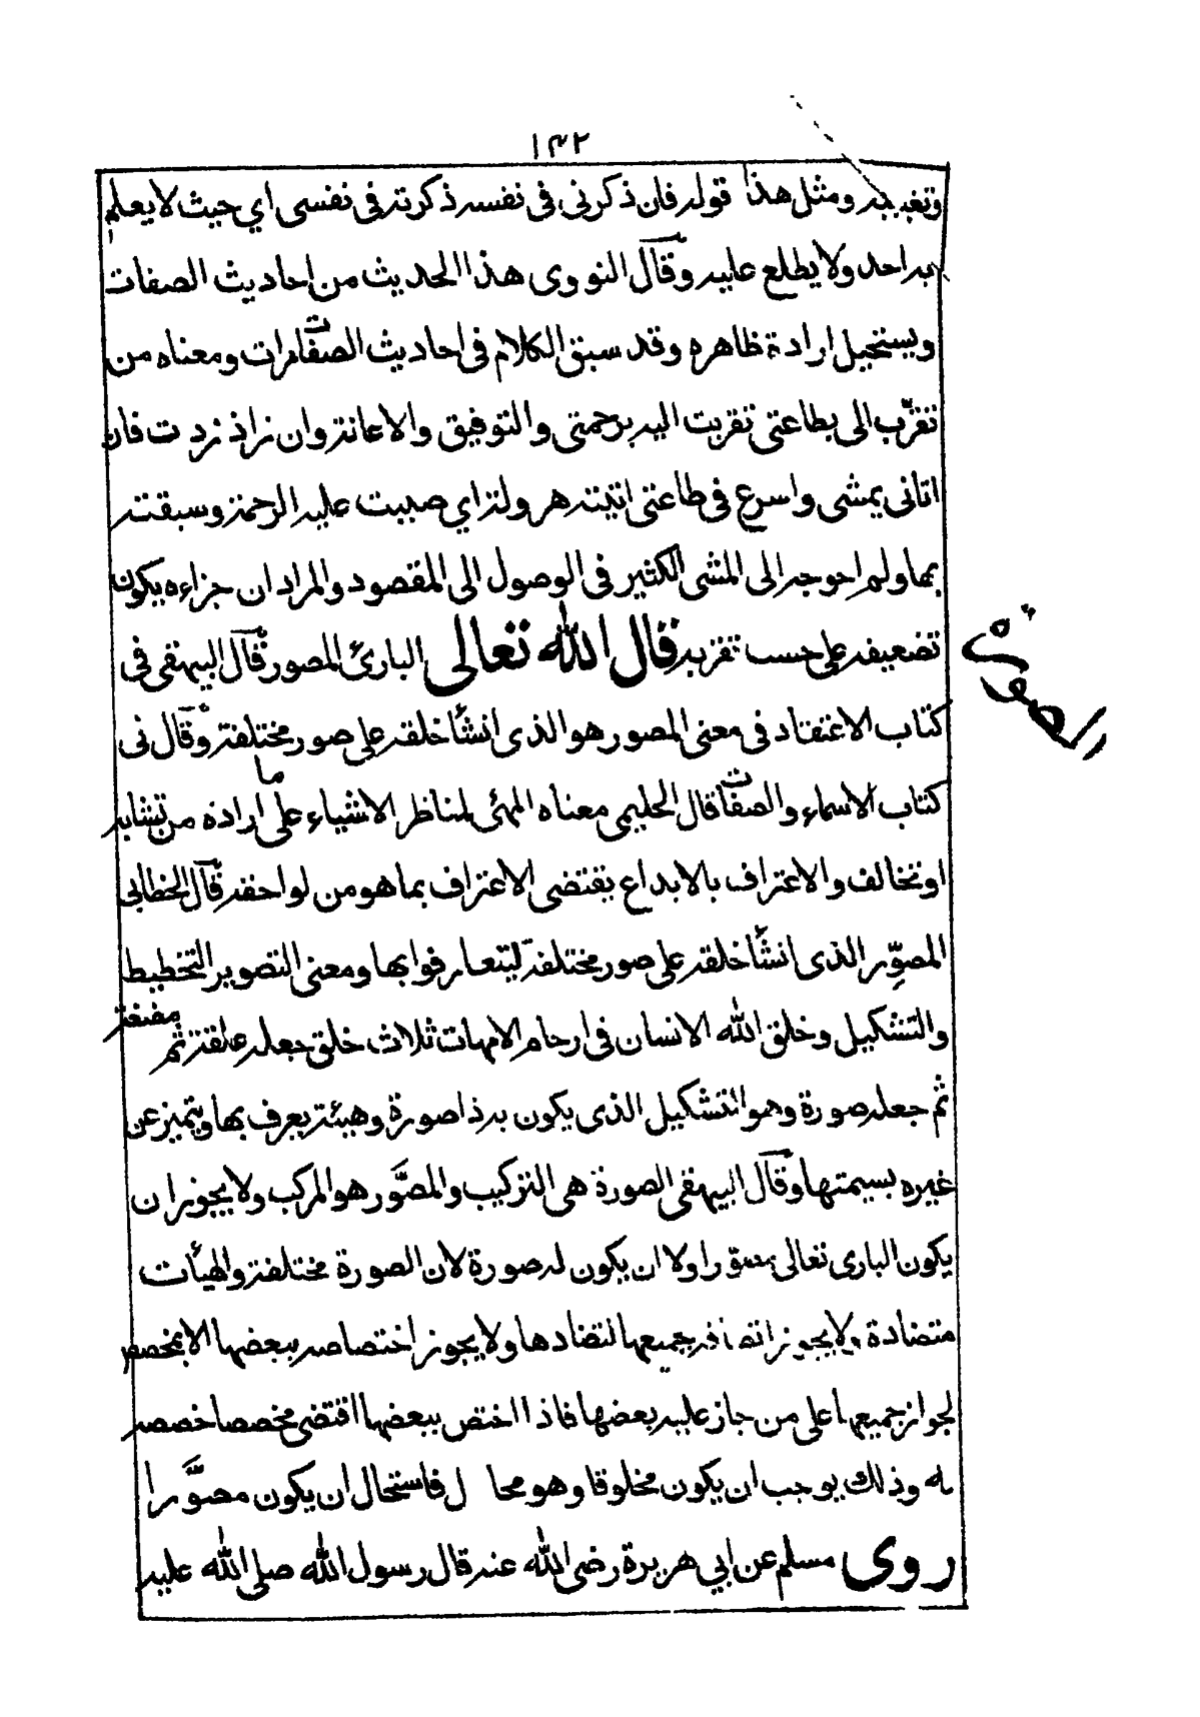 ١٤٢
ومثل هذا قوله فان ذكرنى فى نفسه ذكرته فى نفسى اي حيث لا يعلم
به احد ولا يطلع عليه وقال النووى هذا الحديث من احاديث الصفات
ويستحيل ارادة ظاهره وقد سبق الكلام فى احاديث الصفات مرات ومعناه من
تقرّب الى بطاعتى تقربت اليه برحمتى والتوفيق والاعانة وان زاد زدت فان
اتانى يمشى واسرع فى طاعتى اتيته هرولة اي صببت عليه الرحمة وسبقته
بها ولم احوجه الى المشى الكثير فى الوصول الى المقصود والمراد ان جزاءه يكون
تضعيفه على حسب تقربه قال الله تعالى البارئ المصور قال البيهقى فى
الصورة
كتاب الاعتقاد فى معنى المصور هو الذى انشأ خلقه على صور مختلفة وقال فى
كتاب الاسماء والصفات قال الحليمى معناه المهئ لمناظر الاشياء على ما اراده من تشابه
او تخالف والاعتراف بالابداع يقتضى الاعتراف بما هو من لواحقه قال الخطابى
المصوِّر الذى انشأ خلقه على صور مختلفة ليتعارفوا بها ومعنى التصوير التخطيط
والتشكيل وخلق الله الانسان فى ارحام الامهات ثلاث خلق جعله علقة ثم مضغة
ثم جعله صورة وهو التشكيل الذى يكون به ذا صورة وهيئة يعرف بها ويتميز عن
غيره بسيمتها وقال البيهقى الصورة هى التركيب والمصَّور هو المركب ولا يجوز ان
يكون البارى تعالى مصورا ولا ان يكون له صورة لان الصورة مختلفة والهيأت
متضادة ولا يجوز اتصافه بجميعها لتضادها ولا يجوز اختصاصه ببعضها الا بمخصص
لجواز جميعها على من جاز عليه بعضها فاذا اختص ببعضها اقتضى مخصصا خصصه
به وذلك يوجب ان يكون مخلوقا وهو محال فاستحال ان يكون مصوَّرا
روى مسلم عن ابي هريرة رضى الله عنه قال رسول الله صلى الله عليه